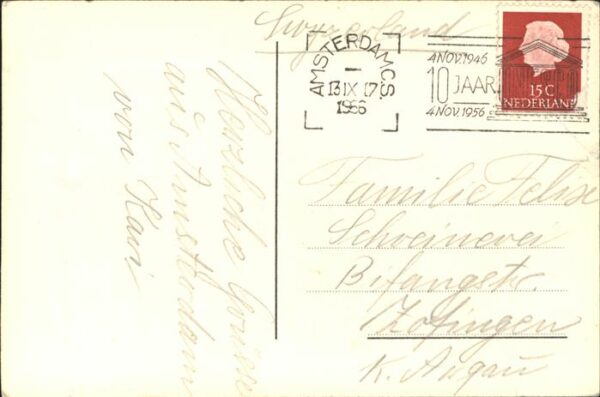 Switzerland
AMSTERDAM C.S.
13 IX 17
1956
4 NOV. 1946
10 JAAR
4 NOV. 1956
15 C
NEDERLAND
Herzliche Grüsse
aus Amsterdam
von Kari
Familie Felix
Schreinerei
Bifangstr.
Zofingen
K. Aargau